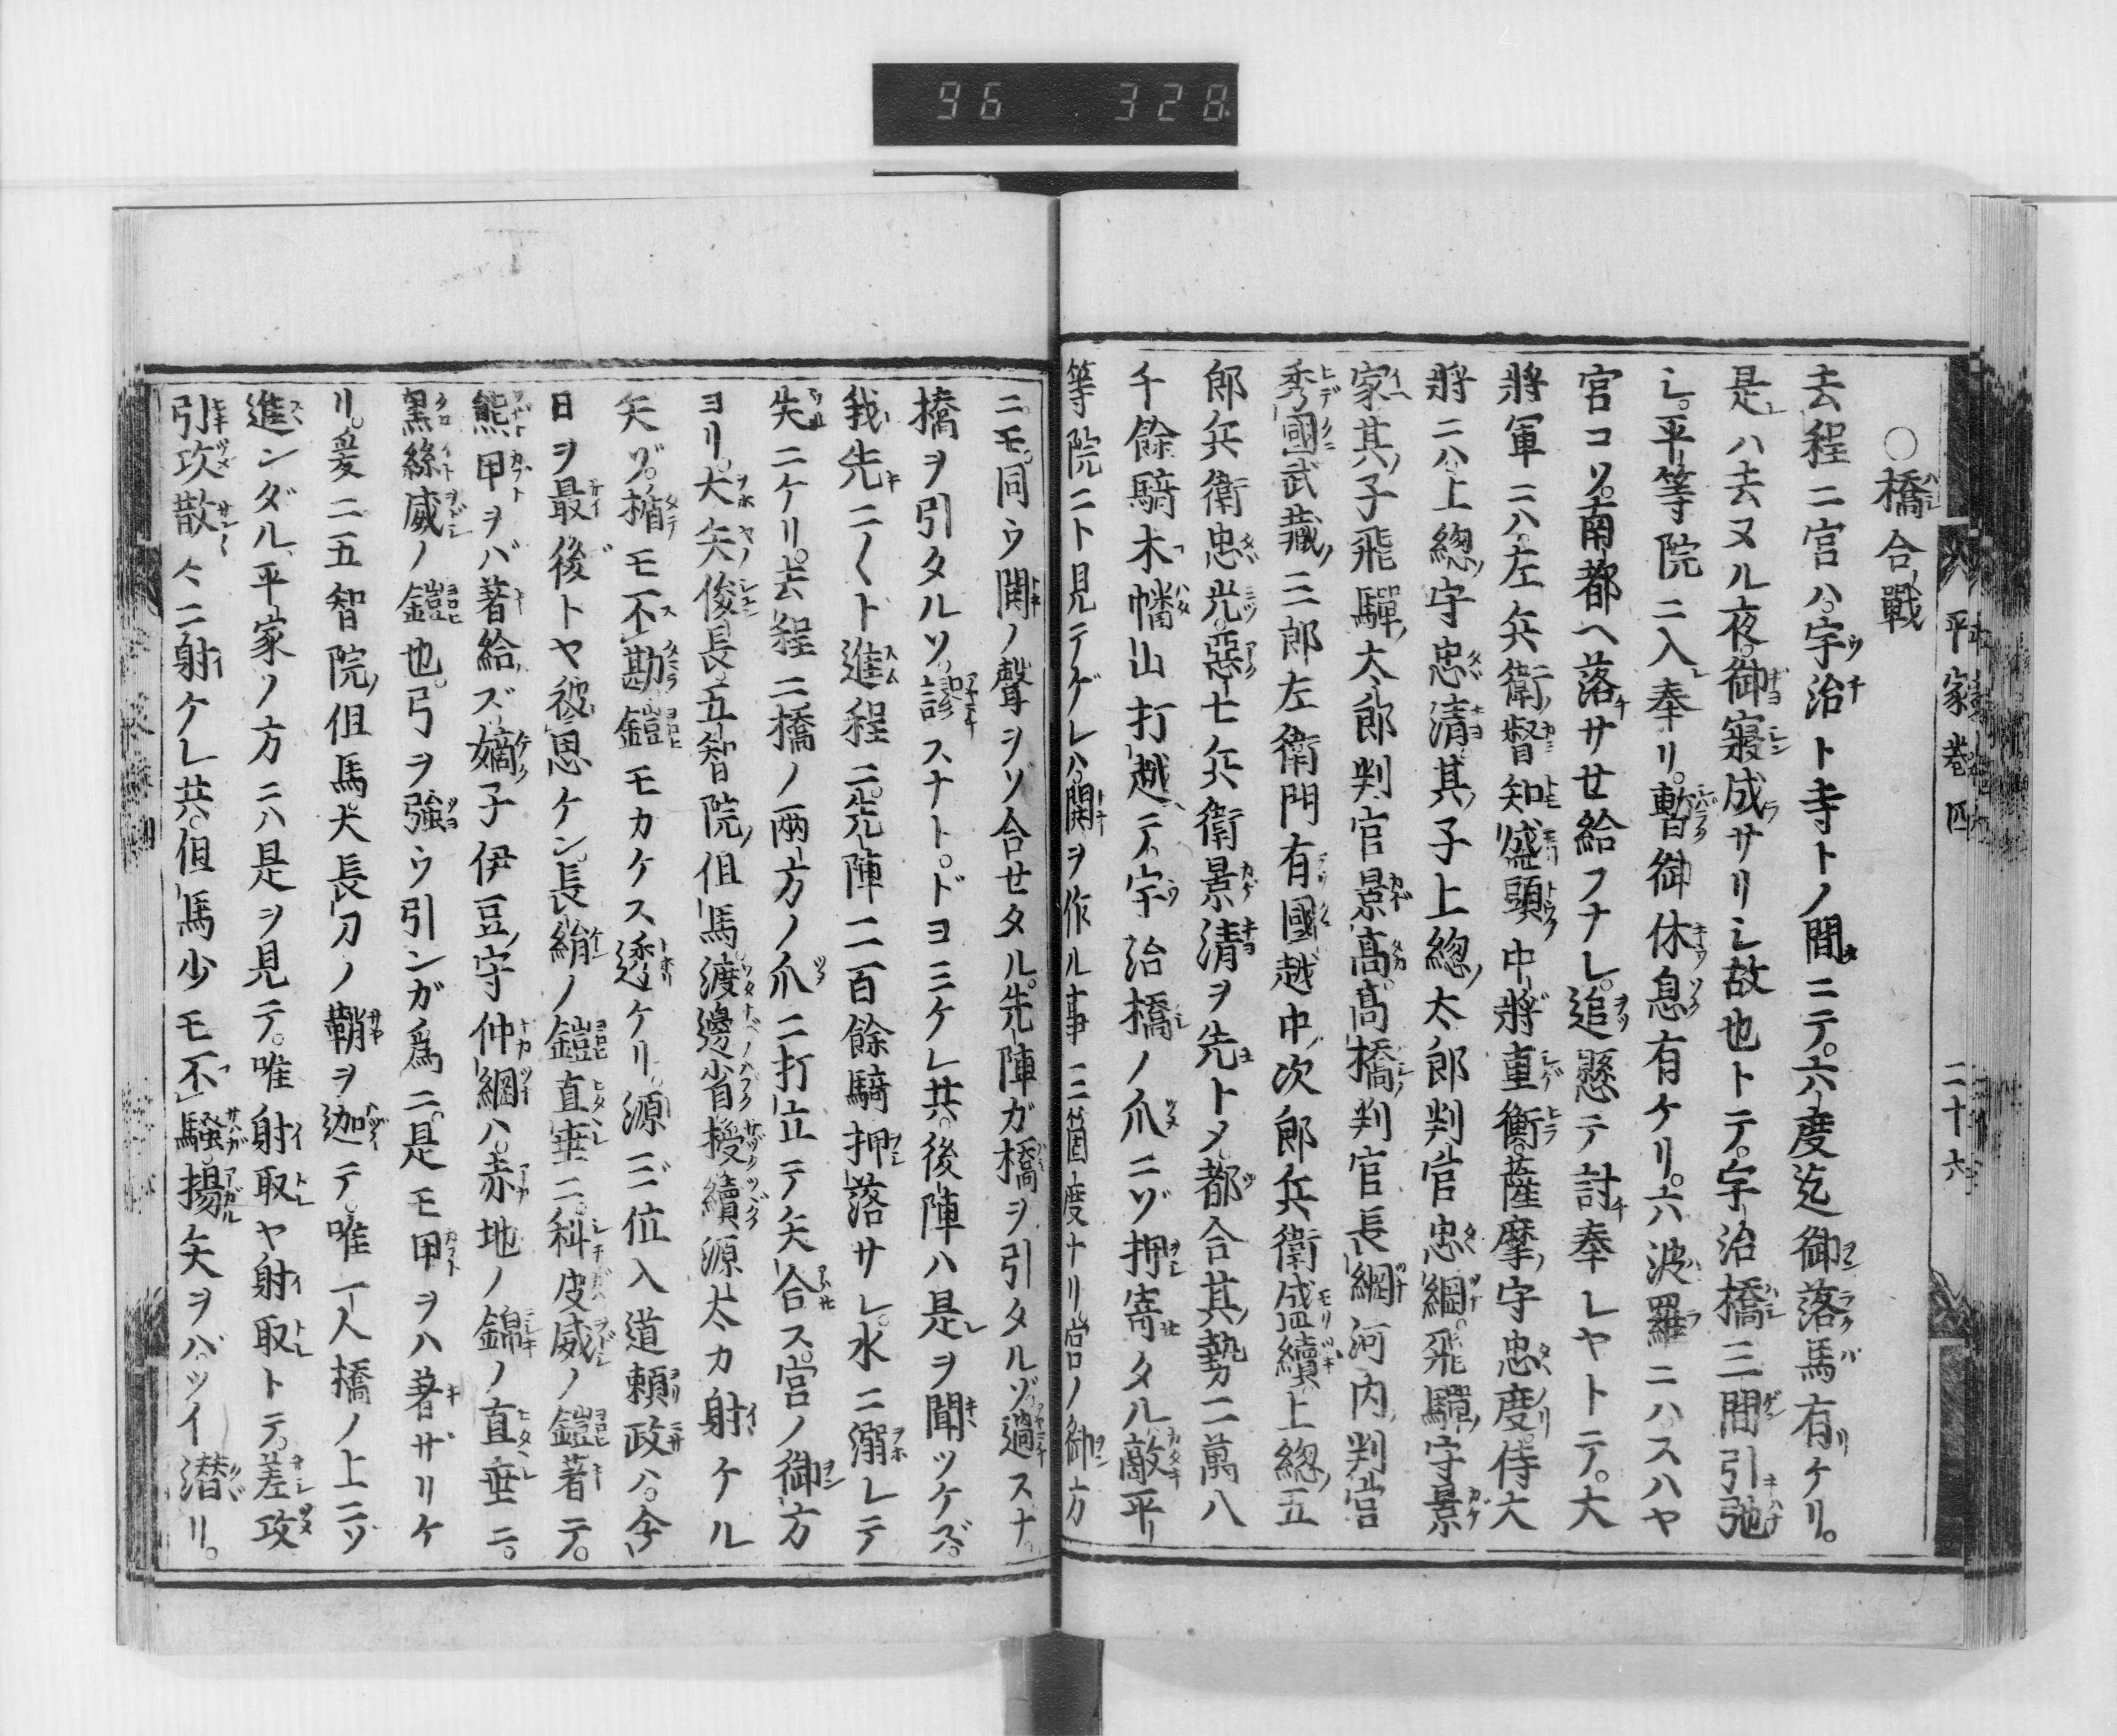 96 328
平家巻四 二十六
〇橋合戰
去程ニ宮ハ。宇治ト寺トノ間ニテ。六度迄御落馬有ケリ。
是ハ去ヌル夜。御寢成サリシ故也トテ。宇治橋三間引弛
シ。平等院ニ入奉リ。暫御休息有ケリ。六波羅ニハスハヤ
宮コソ。南都ヘ落サセ給フナレ。追懸テ討奉レヤトテ。大
將軍ニハ。左兵衛督知盛。頭中將重衡。薩摩守忠度。侍大
將ニハ。上總守忠清。其子上總太郎判官忠綱。飛驒守景
家。其子飛驒太郎判官景高。高橋判官長綱。河内判官
秀國。武藏三郎左衛門有國。越中次郎兵衛盛續。上總五
郎兵衛忠光。惡七兵衛景清ヲ先トメ。都合其勢二萬八
千餘騎。木幡山打越テ。宇治橋ノ爪ニゾ押寄タル。敵平
等院ニト見テゲレハ。閧ヲ作ル事三箇度ナリ。宮ノ御方
ニモ。同ウ閧ノ聲ヲゾ合せタル。先陣ガ橋ヲ引タルゾ。過スナ。
橋ヲ引タルソ。誤スナト。ドヨミケレ共。後陣ハ是ヲ聞ツケズ。
我先ニ〱ト進程ニ。先陣二百餘騎押落サレ。水ニ溺レテ
失ニケリ。去程ニ橋ノ兩方ノ爪ニ打立テ矢合ス。宮ノ御方
ヨリ。大矢俊長。五智院但馬。渡邊省授續源太カ射ケル
矢ゾ。楯モ不勘鎧モカケス透ケリ。源三位入道頼政ハ。今
日ヲ最後トヤ彼思ケン。長絹ノ鎧直垂ニ。科皮威ノ鎧著テ。
熊甲ヲバ著給ズ。嫡子伊豆守仲綱ハ。赤地ノ錦ノ直垂ニ。
黒絲威ノ鎧也。弓ヲ強ウ引ンガ爲ニ。是モ甲ヲハ著ザリケ
リ。爰ニ五智院但馬。大長刀ノ鞘ヲ迦テ。唯一人橋ノ上ニソ
進ンダル。平家ノ方ニハ是ヲ見テ。唯射取ヤ射取トテ。差攻
引攻散々ニ射ケレ共。但馬少モ不騒。揚矢ヲバツイ潜リ。